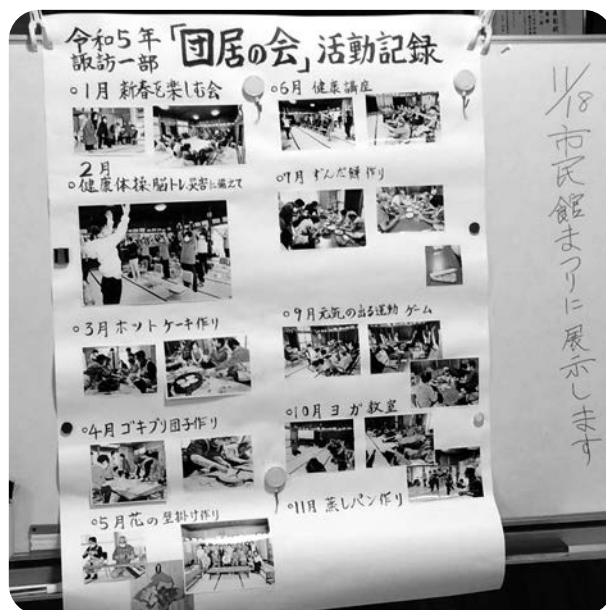 令和5年
諏訪一部
「団居の会」活動記録
○1月 新春を楽しむ会
2月
○健康体操・脳トレ、災害に備えて
○3月 ホットケーキ作り
○4月 ゴキブリ団子作り
○5月 花の壁掛け作り
○6月 健康講座
○7月 ずんだ餅作り
○9月 元気の出る運動 ゲーム
○10月 ヨガ教室
○11月 蒸しパン作り
11/18 市民館まつりに展示します